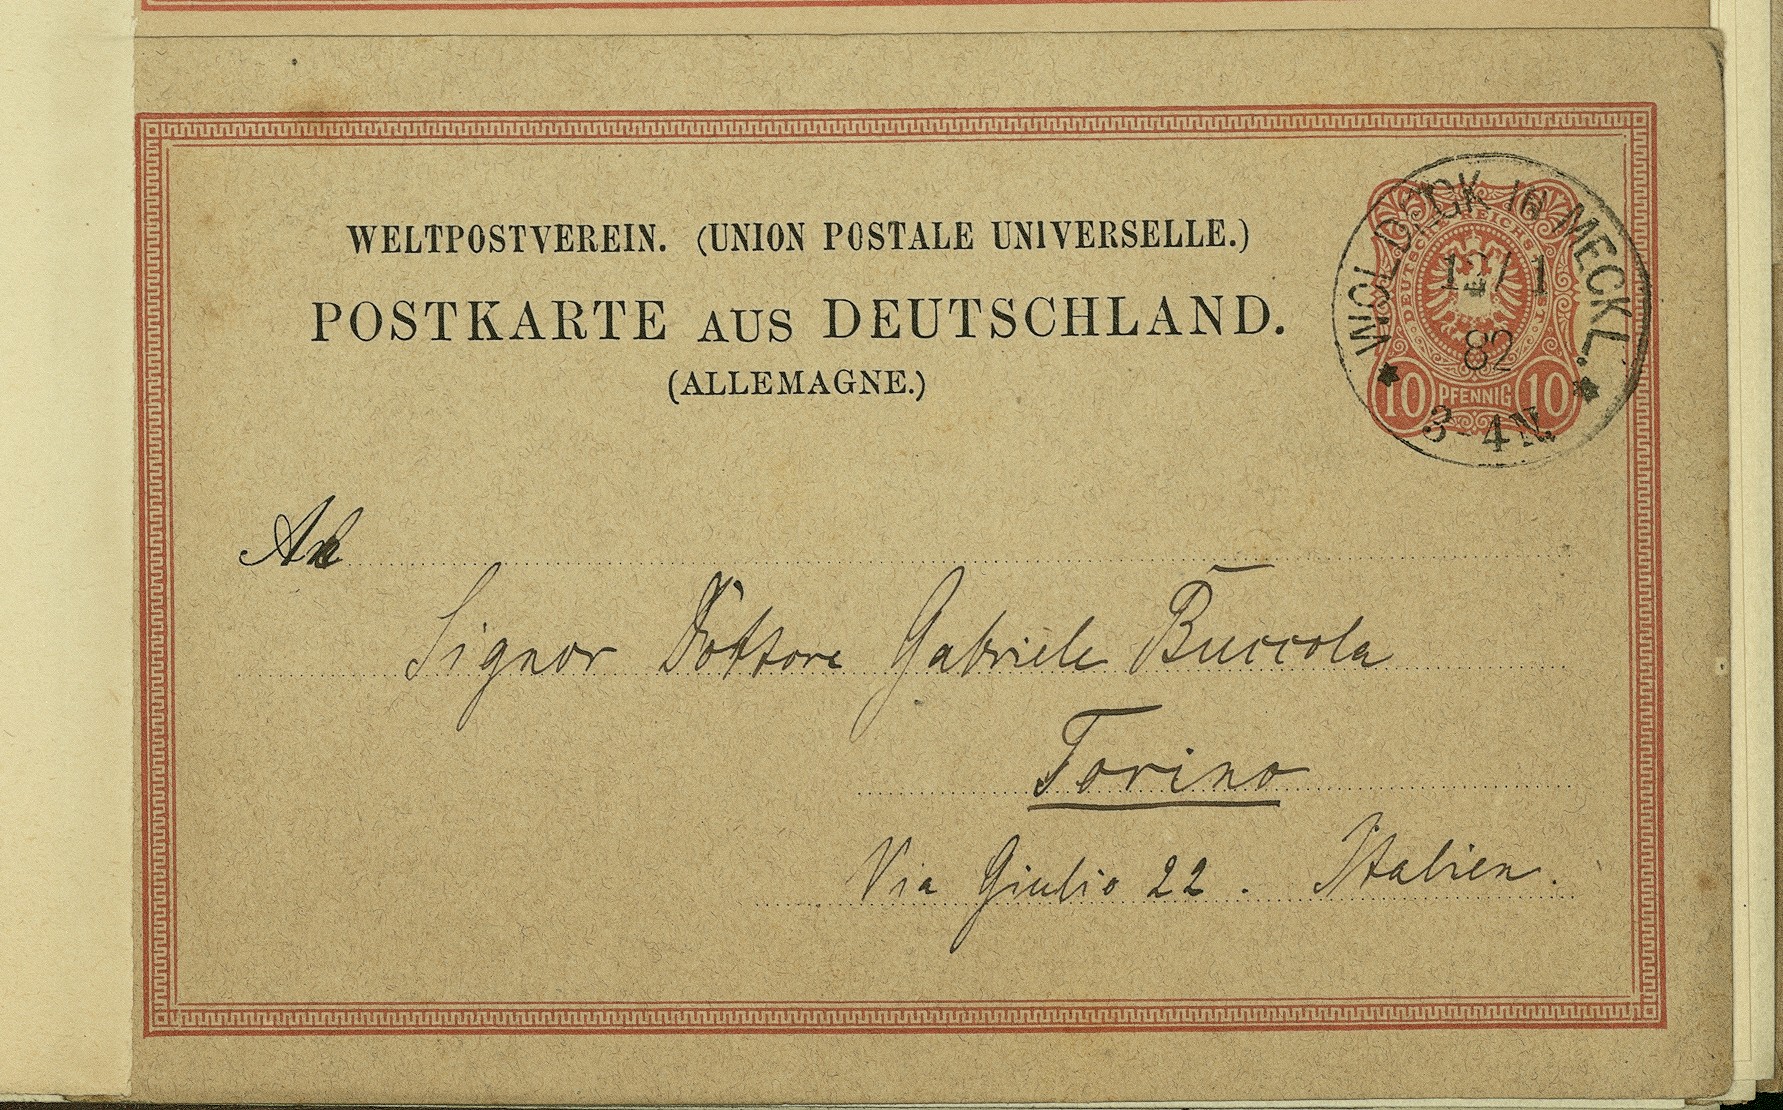 WELTPOSTVEREIN. (UNION POSTALE UNIVERSELLE.)
POSTKARTE AUS DEUTSCHLAND.
(ALLEMAGNE.)
WOLDEGK IN MECKL.
12/1
82
3-4N.
DEUTSCHE REICHSPOST
10 PFENNIG 10
An
Signor Dottore Gabriele Buccola
Torino
Via Giulio 22. Italien.